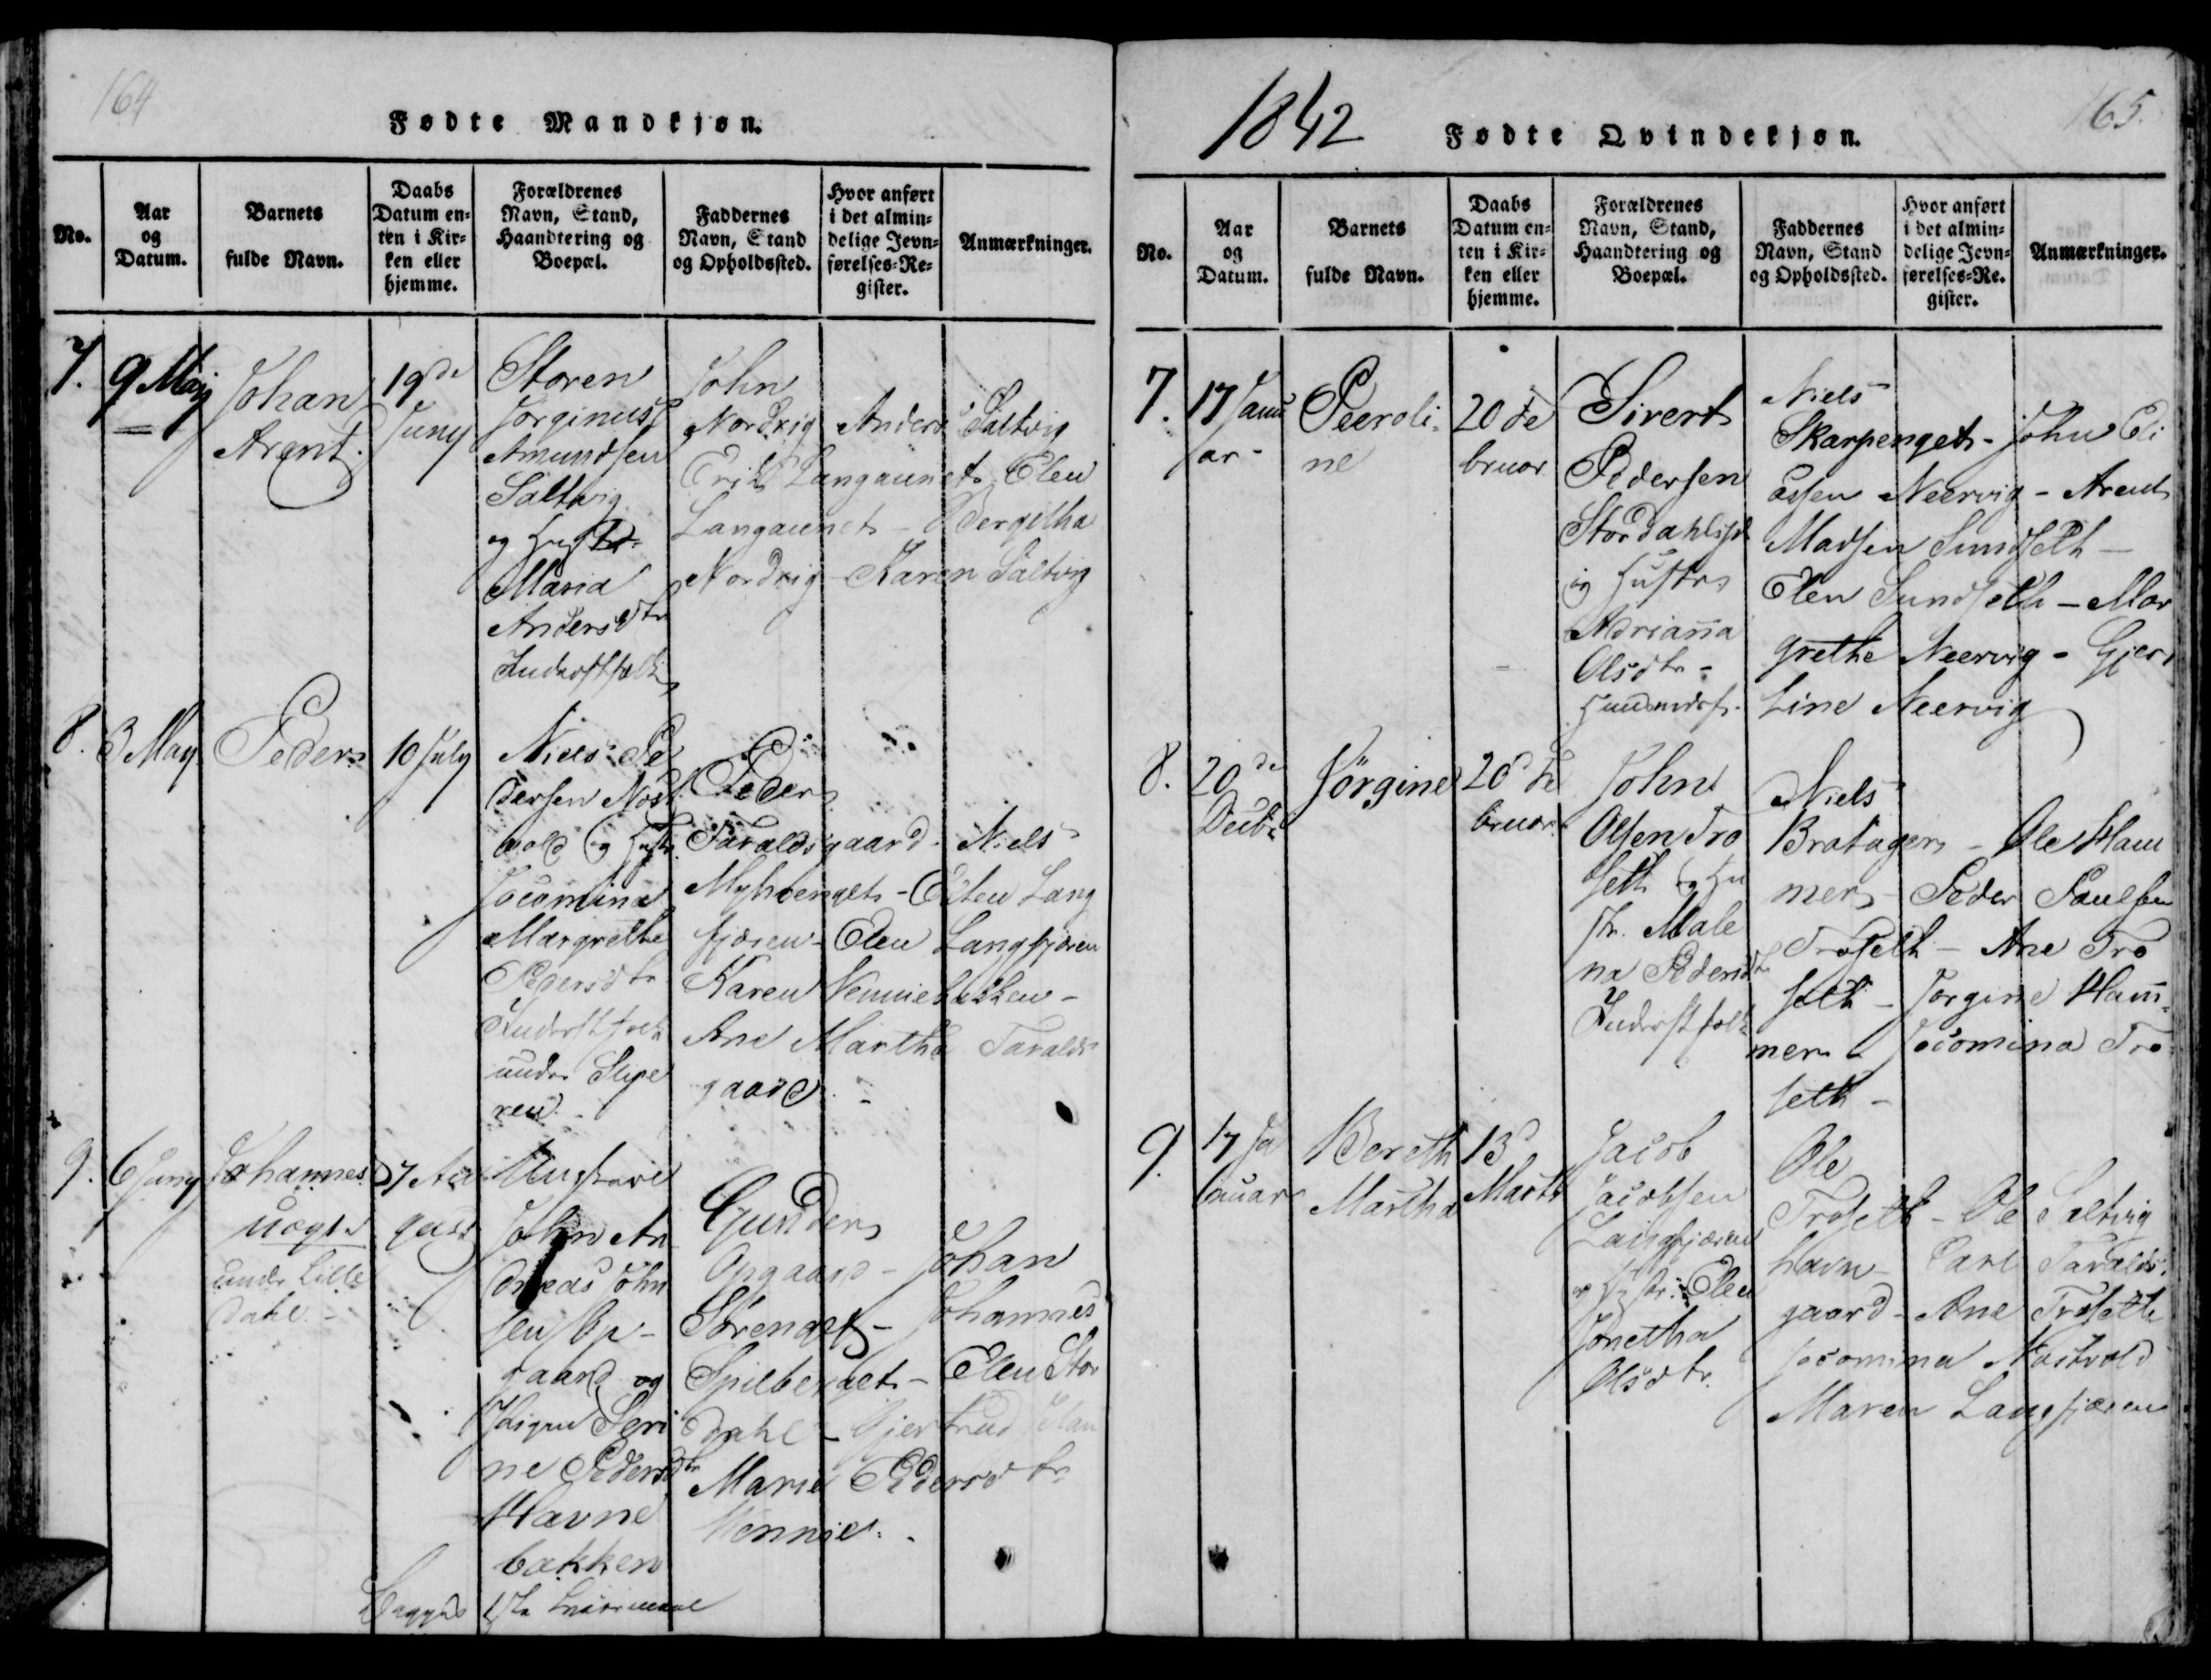 164
Fødte Mandkjøn.
No.
Aar
og
Datum.
Barnets
fulde Navn.
Daabs
Datum en-
ten i Kir-
ken eller
hjemme.
Forældrenes
Navn, Stand,
Haandtering og
Boepæl.
Faddernes
Navn, Stand
og Opholdssted.
Hvor anført
i det almin-
delige Jevn-
førelses-Re-
gister.
Anmærkninger.
7.
9 Maj
Johan
Arent.
19de
Juny
Storen
Jørginus
Amundsen
Saltvig
og Hustr.
Maria
Andersdtr
Inderstfolk
John
Nordvig Anders Saltvig
Erik Langaunet. Elen
Langaunet - Bergitha
Nordvig - Karen Saltvig
8.
3 May
Peder
10 July
Niels Pe
dersen Nøst
vold og Hustr.
Jocomina
Margrethe
Pedersdtr
Inderstfolk
under Slipe
ren -
Peder
Taraldsgaard. Niels
Myhrenget - Elen Lang
fjæren - Elen Langfjæren
Karen Venniebakken -
Ane Martha Taralds
gaard. -
9.
6 Juny
Johannes
uægte
under Lille
dahl -
7 Au
gust
Ungkarl
John An
dreas John
sen Op-
gaard og
Pigen Seri
ne Pedersdtr
Havne
bakken
Begges 1ste Leiermaal
Gunder
Opgaard - Johan
Sørenget - Johannes
Spilberget - Elen Stor
dahl - Gjertrud
Marie Pedersdtr
Vennie.
1842
Fødte Qvindekjøn.
165.
No.
Aar
og
Datum.
Barnets
fulde Navn.
Daabs
Datum en-
ten i Kir-
ken eller
hjemme.
Forældrenes
Navn, Stand,
Haandtering og
Boepæl.
Faddernes
Navn, Stand
og Opholdssted.
Hvor anført
i det almin-
delige Jevn-
førelses-Re-
gister.
Anmærkninger.
7.
17 Janu
ar -
Peeroli-
ne
20 Fe
bruar
Sivert
Pedersen
Stordahls
og Hustr
Adriana
Olsdtr -
Huusmdsf.
Niels
Skarpenget - John Eli
assen Neervig - Arent
Madsen Sundseth -
Elen Sundseth - Mar
grethe Neervig - Gjer
tine Neervig
8.
20de
Decbr
Jørgine
20 Fe
bruar
John
Olsen Tro
seth og Hu
str. Male
na Pedersdtr
Inderstfolk
Niels
Bratager - Ole Ham
mer - Peder Paulsen
Troseth - Ane Tro
seth - Jørgine Ham-
mer - Jocomina Tro
seth -
9.
17 Ja
nuar
Bereth
Martha
13
Marts
Jacob
Jacobsen
Langfjæren
og Hustr. Elen
Jonetha
Olsdtr.
Ole
Troseth - Ole Saltvig
havn - Carl Taralds-
gaard - Ane Troseth
Jocomina Nøstvold
Maren Langfjæren